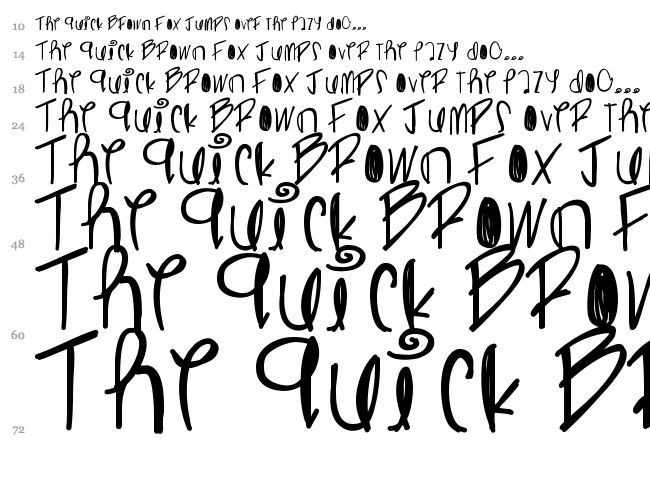 10 The quick Brown Fox Jumps over the lazy dog...
14 The quick Brown Fox Jumps over the lazy dog...
18 The quick Brown Fox Jumps over the lazy dog...
24 The quick Brown Fox Jumps over the
36 The quick Brown Fox Ju
48 The quick Brown F
60 The quick Bro
72 The quick B